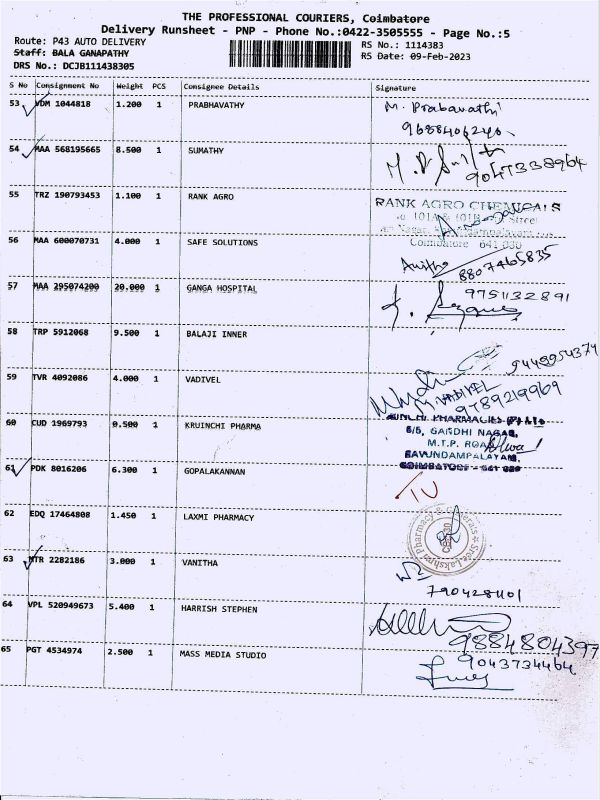 THE PROFESSIONAL COURIERS, Coimbatore
Delivery Runsheet - PNP - Phone No.:0422-3505555 - Page No.:5
Route: P43 AUTO DELIVERY
RS No.: 1114383
Staff: BALA GANAPATHY
RS Date: 09-Feb-2023
DRS No.: DCJB111438305
S No Consignment No Weight PCS Consignee Details Signature
53 VDM 1044818 1.200 1 PRABHAVATHY M. Prabavathi
9688406240
54 MAA 568195665 8.500 1 SUMATHY
9047338964
55 TRZ 190793453 1.100 1 RANK AGRO RANK AGRO CHEMICALS
Coimbatore 641 030
56 MAA 600070731 4.000 1 SAFE SOLUTIONS Anitha
8807465835
57 MAA 295074200 20.000 1 GANGA HOSPITAL 9751132891
58 TRP 5912068 9.500 1 BALAJI INNER
59 TVR 4092086 4.000 1 VADIVEL VADIVEL
9789219969
60 CUD 1969793 0.500 1 KRUINCHI PHARMA
6/5, GANDHI NAGAR,
M.T.P. ROAD
RAVUNDAMPALAYAM,
COIMBATORE - 641 030
61 PDK 8016206 6.300 1 GOPALAKANNAN TV
62 EDQ 17464808 1.450 1 LAXMI PHARMACY
63 MTR 2282186 3.000 1 VANITHA
7904281101
64 VPL 520949673 5.400 1 HARRISH STEPHEN
9884804397
65 PGT 4534974 2.500 1 MASS MEDIA STUDIO 9043734464